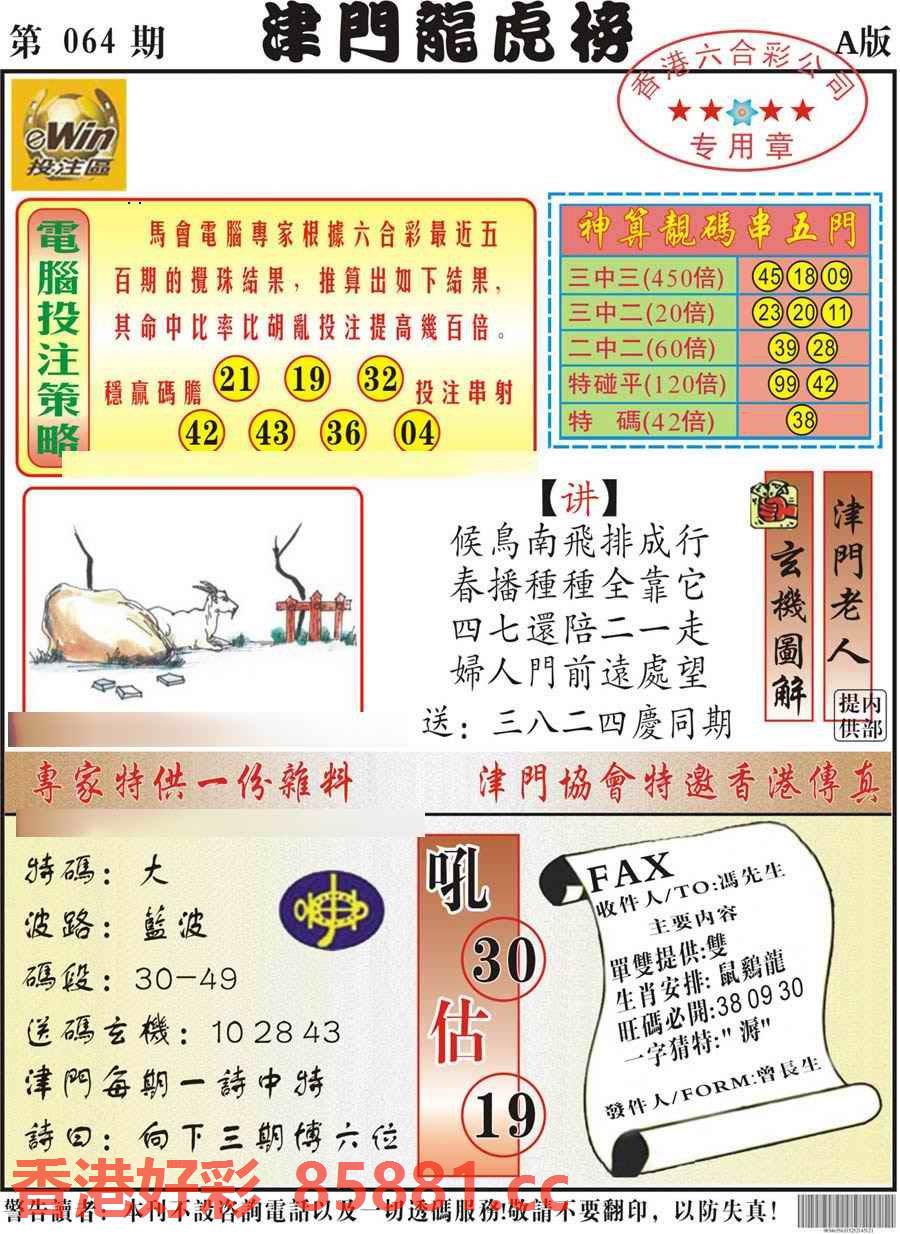 第 064 期
津門龍虎榜
A版
香港六合彩公司
专用章
eWin
投注區
電腦投注策略
馬會電腦專家根據六合彩最近五
百期的攪珠結果，推算出如下結果，
其命中比率比胡亂投注提高幾百倍。
穩贏碼膽 21 19 32 投注串射
42 43 36 04
神算靚碼串五門
三中三(450倍) 45 18 09
三中二(20倍) 23 20 11
二中二(60倍) 39 28
特碰平(120倍) 99 42
特 碼(42倍) 38
【讲】
候鳥南飛排成行
春播種種全靠它
四七還陪二一走
婦人門前遠處望
送：三八二四慶同期
玄機圖解
津門老人
内部提供
專家特供一份雜料
津門協會特邀香港傳真
特碼：大
波路：藍波
碼段：30—49
送碼玄機：10 28 43
津門每期一詩中特
詩曰：向下三期博六位
吼
30
估
19
FAX
收件人/TO:馮先生
主要内容
單雙提供:雙
生肖安排: 鼠鷄龍
旺碼必開:38 09 30
一字猜特:"潯"
發件人/FORM:曾長生
香港好彩 85881.cc
警告讀者：本刊不設咨詢電話以及一切透碼服務!敬請不要翻印，以防失真!